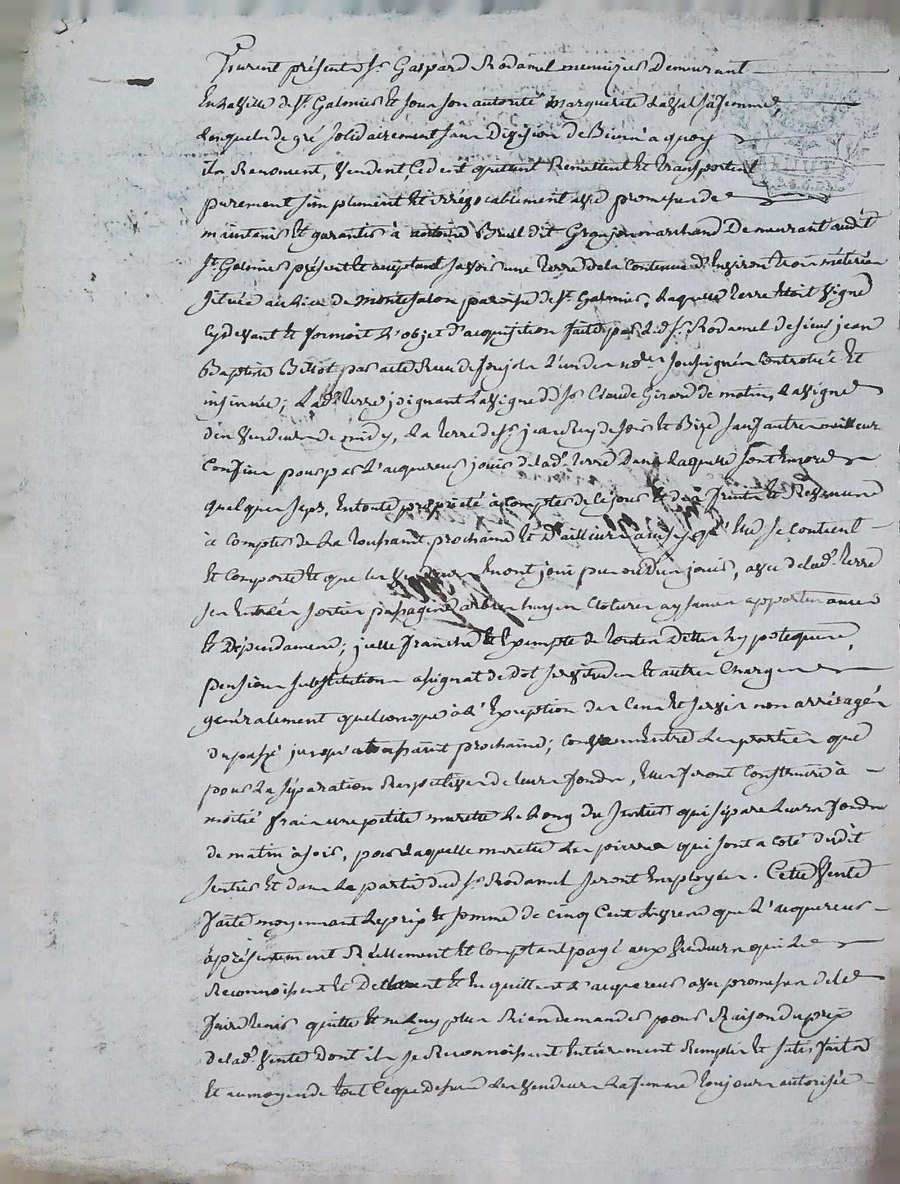 Furent présents Sr. Gaspard Rodamel menuizier Demeurant
En la Ville de St. Galmier Et sous son autorité Marguerite Lassal sa femme
Lesquels de gré solidairement sans Division de Biens a quoy
ils Renoncent, Vendent Cedent quittent Remettent Et transportent
purement simplement Et irrévocablement avec promesse de
maintenir Et garantir à Bril dit Granjon marchand Demeurant audit
St. Galmier présent Et acceptant savoir une Terre de la Contenue d'Environ trois méterées
située au lieu de Montesalon paroisse de St. Galmier, Laquelle Terre étoit Vigne
Cy devant Et formoit L'objet d'acquisition faite par L.d. Sr. Rodamel de sieur jean
Baptiste Billot par acte Reçu de L'un des nres. soussignés Controlé Et
insinué; Lad. Terre joignant La Vigne de Sr. Claude Girard de matin, La Vigne
des Vendeurs de midy, La Terre de Sr. jean Ruy de soir Et Bize sauf autres meilleurs
Confins pour par L'acquereur jouir de lad. Terre Dans Laquelle sont Encore
quelques seps, En toute propriété à Compter de Ce jour Et des fruits Et Revenus
à Compter de La Toussaint prochaine Et D'ailleurs ainsy qu'Elle se Contient
Et Comporte Et que les Vendeurs En ont joui pu ou Du jouir, avec de lad. Terre
ses Entrées sorties passages arbres hayes Clotures aysances appartenances
Et Dépendances; icelle franche Et Exempte de toutes Dettes hypoteques
pensions substitutions asignat de Dot servitudes Et autres Charges
généralement quelconques à L'Exception des Cens Et servis non arréragés
du passé jusqu'à toussaint prochaine; Convenu Entre Les parties que
pour La séparation Respective de leurs fonds, Elles feront Construire à
moitié frais une petite murette Le Long du sentier qui sépare Leurs fonds
de matin à soir, pour Laquelle murette Les pierres qui sont a coté dudit
sentier Et dans La partie dud. Sr. Rodamel seront Employées. Cette Vente
faite moyennant Le prix Et somme de Cinq Cent Livres que L'acquereur
a présentement Réellement Et Comptant payé aux Vendeurs qui Le
Reconnoissent Et En quittent L'acquereur avec promesse de le
faire tenir quitte Et ne Luy plus Rien demander pour Raison du prix
de lad. Vente dont ils se Reconnoissent Entièrement Remplis Et satisfaits
Et au moyen de tout Ce que dessus Les Vendeurs La femme toujours autorisée